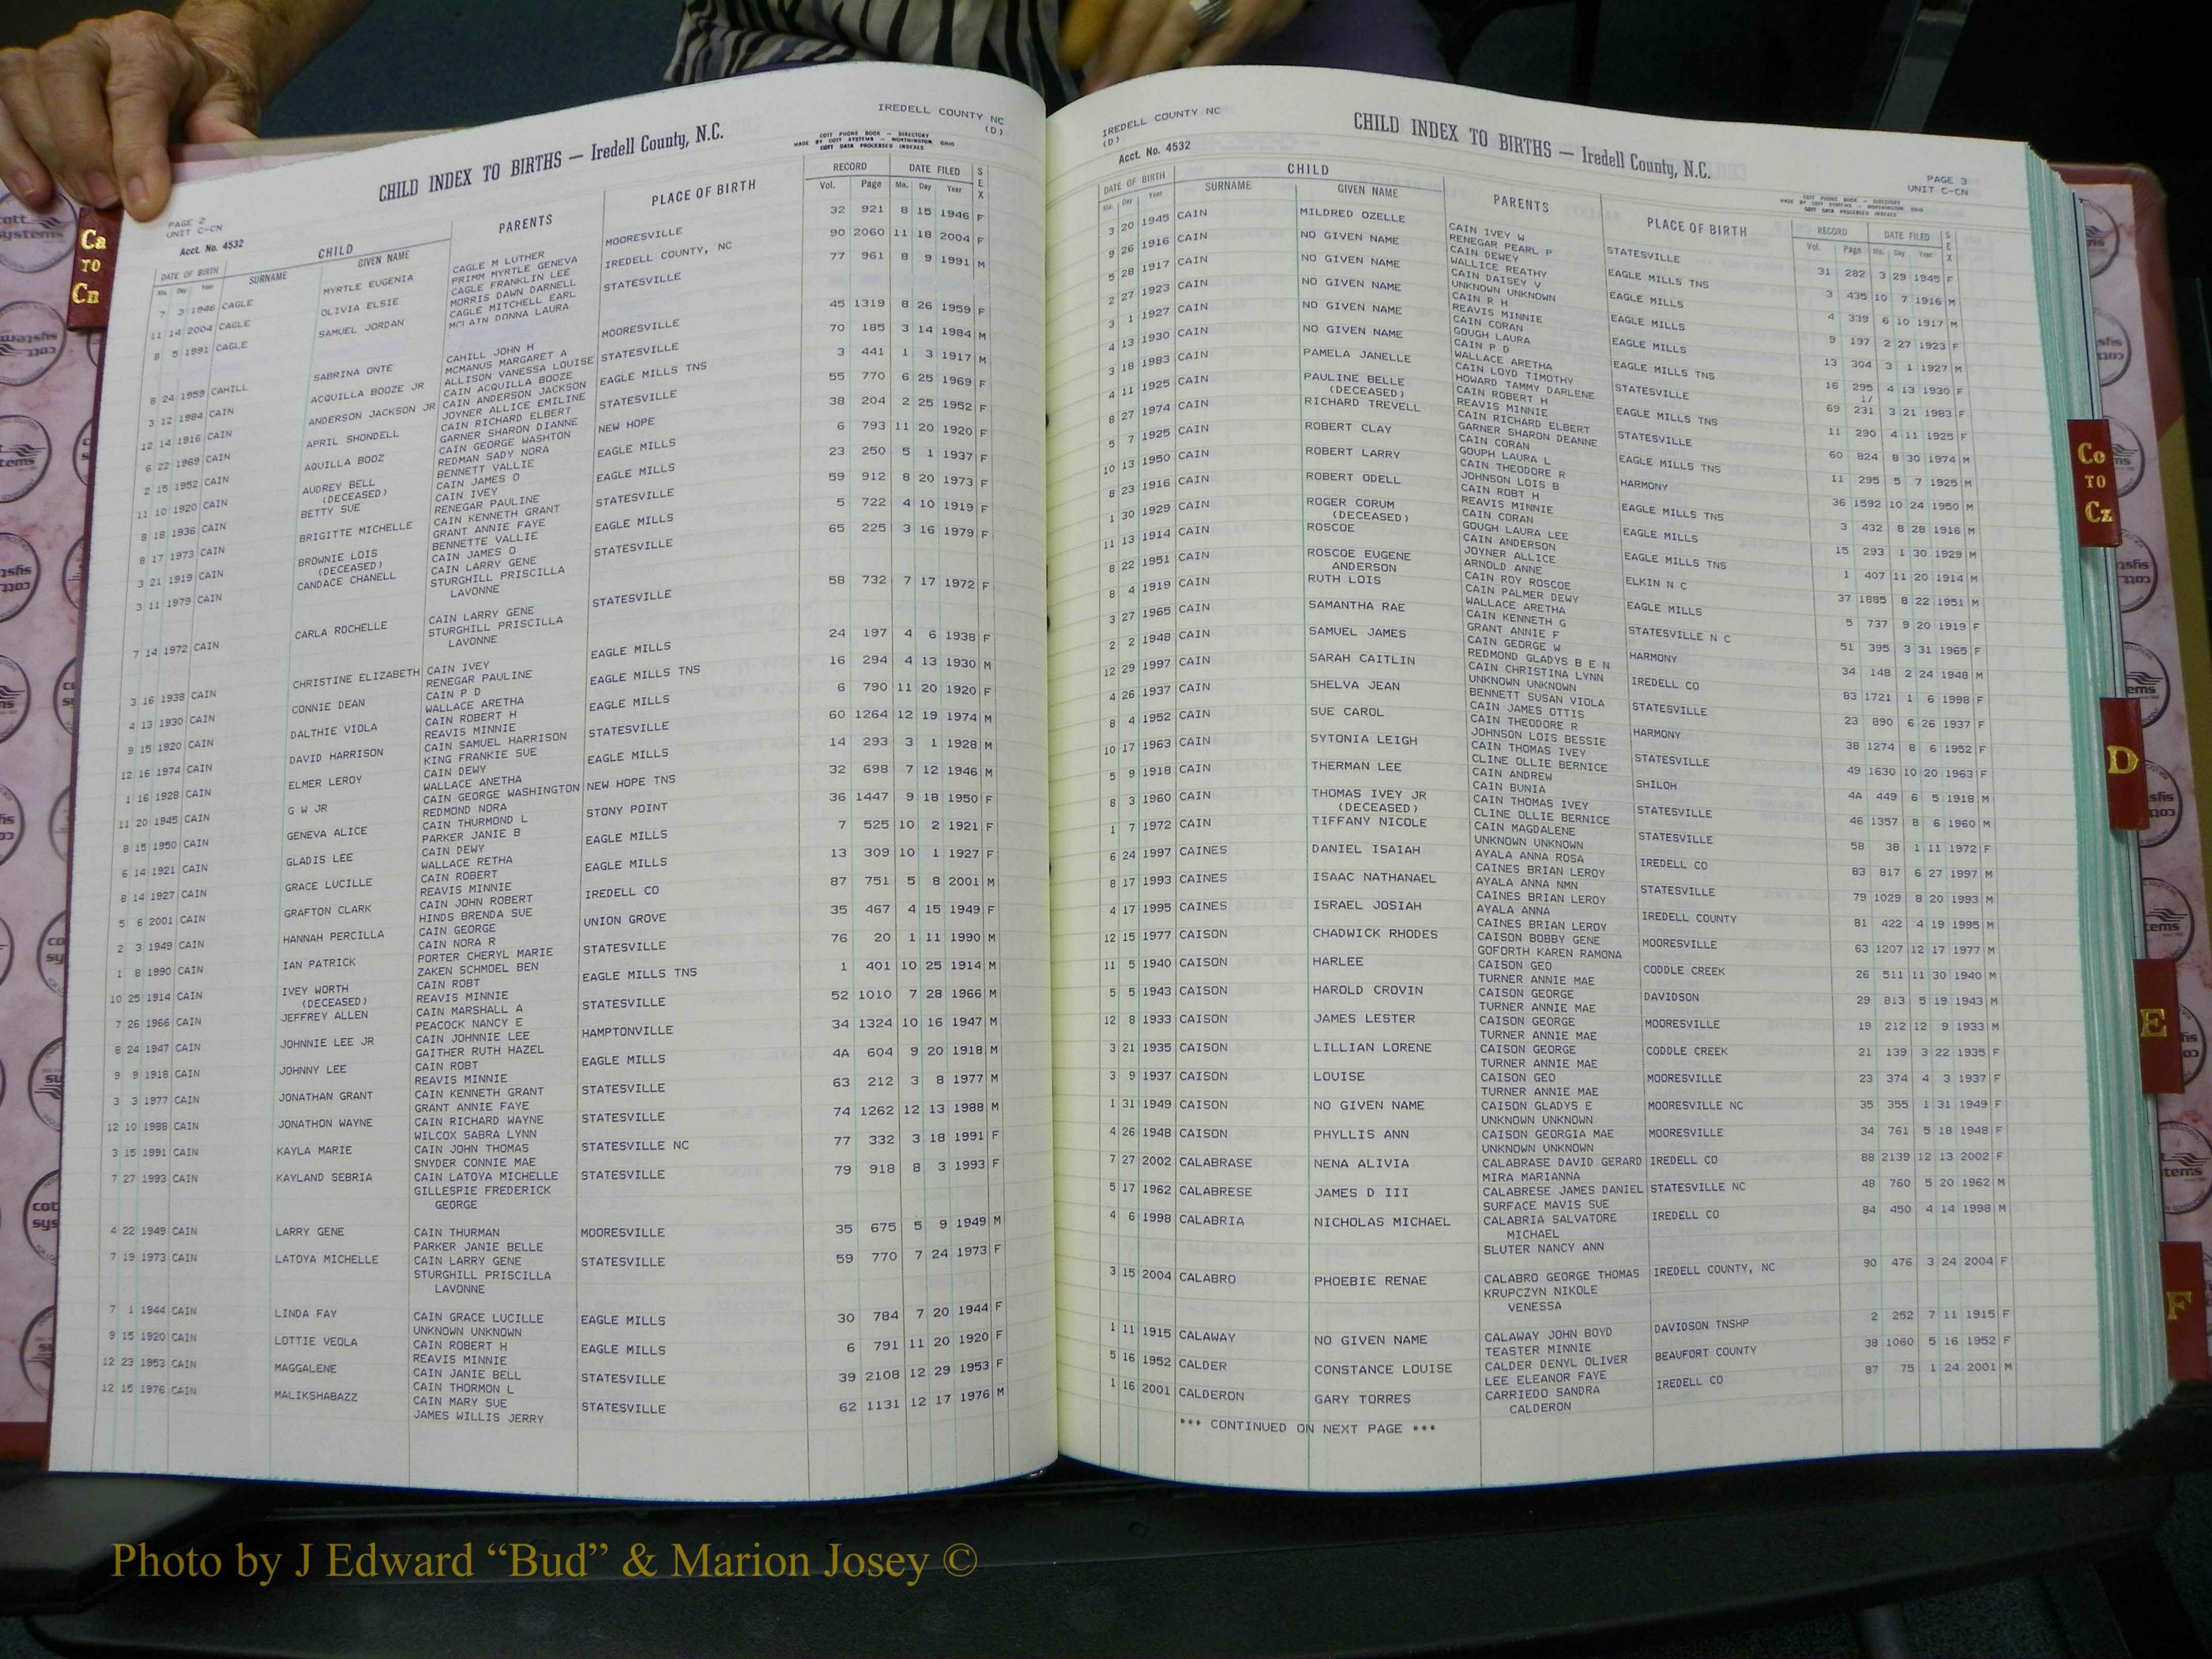 IREDELL COUNTY NC
(D)
CHILD INDEX TO BIRTHS — Iredell County, N.C.
COTT PHONE BOOK — DIRECTORY
MADE BY COTT SYSTEMS — WORTHINGTON, OHIO
COTT DATA PROCESSED INDEXES
PAGE 2
UNIT C-CN
Acct. No. 4532
CHILD PARENTS PLACE OF BIRTH RECORD DATE FILED SEX
DATE OF BIRTH SURNAME GIVEN NAME Vol. Page Mo. Day Year
Mo. Day Year
7 3 1946 CAGLE MYRTLE EUGENIA CAGLE M LUTHER MOORESVILLE 32 921 8 15 1946 F
PRIMM MYRTLE GENEVA
11 14 2004 CAGLE OLIVIA ELSIE CAGLE FRANKLIN LEE IREDELL COUNTY, NC 90 2060 11 18 2004 F
MORRIS DAWN DARNELL
8 5 1991 CAGLE SAMUEL JORDAN CAGLE MITCHELL EARL STATESVILLE 77 961 8 9 1991 M
MCLAIN DONNA LAURA
8 24 1959 CAHILL SABRINA ONTE CAHILL JOHN H MOORESVILLE 45 1319 8 26 1959 F
MCMANUS MARGARET A
3 12 1984 CAIN ACQUILLA BOOZE JR ALLISON VANESSA LOUISE STATESVILLE 70 185 3 14 1984 M
CAIN ACQUILLA BOOZE
12 14 1916 CAIN ANDERSON JACKSON JR CAIN ANDERSON JACKSON EAGLE MILLS TNS 3 441 1 3 1917 M
JOYNER ALLICE EMILINE
6 22 1969 CAIN APRIL SHONDELL CAIN RICHARD ELBERT STATESVILLE 55 770 6 25 1969 F
GARNER SHARON DIANNE
2 15 1952 CAIN AQUILLA BOOZ CAIN GEORGE WASHTON NEW HOPE 38 204 2 25 1952 F
REDMAN SADY NORA
11 10 1920 CAIN AUDREY BELL BENNETT VALLIE EAGLE MILLS 6 793 11 20 1920 F
(DECEASED) CAIN JAMES O
8 18 1936 CAIN BETTY SUE CAIN IVEY EAGLE MILLS 23 250 5 1 1937 F
RENEGAR PAULINE
8 17 1973 CAIN BRIGITTE MICHELLE CAIN KENNETH GRANT STATESVILLE 59 912 8 20 1973 F
GRANT ANNIE FAYE
3 21 1919 CAIN BROWNIE LOIS BENNETTE VALLIE EAGLE MILLS 5 722 4 10 1919 F
(DECEASED) CAIN JAMES O
3 11 1979 CAIN CANDACE CHANELL CAIN LARRY GENE STATESVILLE 65 225 3 16 1979 F
STURGHILL PRISCILLA
LAVONNE
7 14 1972 CAIN CARLA ROCHELLE CAIN LARRY GENE STATESVILLE 58 732 7 17 1972 F
STURGHILL PRISCILLA
LAVONNE
3 16 1938 CAIN CHRISTINE ELIZABETH CAIN IVEY EAGLE MILLS 24 197 4 6 1938 F
RENEGAR PAULINE
4 13 1930 CAIN CONNIE DEAN CAIN P D EAGLE MILLS TNS 16 294 4 13 1930 M
WALLACE ARETHA
9 15 1920 CAIN DALTHIE VIOLA CAIN ROBERT H EAGLE MILLS 6 790 11 20 1920 F
REAVIS MINNIE
12 16 1974 CAIN DAVID HARRISON CAIN SAMUEL HARRISON STATESVILLE 60 1264 12 19 1974 M
KING FRANKIE SUE
1 16 1928 CAIN ELMER LEROY CAIN DEWY EAGLE MILLS 14 293 3 1 1928 M
WALLACE ANETHA
11 20 1945 CAIN G W JR CAIN GEORGE WASHINGTON NEW HOPE TNS 32 698 7 12 1946 M
REDMOND NORA
8 15 1950 CAIN GENEVA ALICE CAIN THURMOND L STONY POINT 36 1447 9 18 1950 F
PARKER JANIE B
6 14 1921 CAIN GLADIS LEE CAIN DEWY EAGLE MILLS 7 525 10 2 1921 F
WALLACE RETHA
8 14 1927 CAIN GRACE LUCILLE CAIN ROBERT EAGLE MILLS 13 309 10 1 1927 F
REAVIS MINNIE
5 6 2001 CAIN GRAFTON CLARK CAIN JOHN ROBERT IREDELL CO 87 751 5 8 2001 M
HINDS BRENDA SUE
2 3 1949 CAIN HANNAH PERCILLA CAIN GEORGE UNION GROVE 35 467 4 15 1949 F
CAIN NORA R
1 8 1990 CAIN IAN PATRICK PORTER CHERYL MARIE STATESVILLE 76 20 1 11 1990 M
ZAKEN SCHMOEL BEN
10 25 1914 CAIN IVEY WORTH CAIN ROBT EAGLE MILLS TNS 1 401 10 25 1914 M
(DECEASED) REAVIS MINNIE
7 26 1966 CAIN JEFFREY ALLEN CAIN MARSHALL A STATESVILLE 52 1010 7 28 1966 M
PEACOCK NANCY E
8 24 1947 CAIN JOHNNIE LEE JR CAIN JOHNNIE LEE HAMPTONVILLE 34 1324 10 16 1947 M
GAITHER RUTH HAZEL
9 9 1918 CAIN JOHNNY LEE CAIN ROBT EAGLE MILLS 4A 604 9 20 1918 M
REAVIS MINNIE
3 3 1977 CAIN JONATHAN GRANT CAIN KENNETH GRANT STATESVILLE 63 212 3 8 1977 M
GRANT ANNIE FAYE
12 10 1988 CAIN JONATHON WAYNE CAIN RICHARD WAYNE STATESVILLE 74 1262 12 13 1988 M
WILCOX SABRA LYNN
3 15 1991 CAIN KAYLA MARIE CAIN JOHN THOMAS STATESVILLE NC 77 332 3 18 1991 F
SNYDER CONNIE MAE
7 27 1993 CAIN KAYLAND SEBRIA CAIN LATOYA MICHELLE STATESVILLE 79 918 8 3 1993 F
GILLESPIE FREDERICK
GEORGE
4 22 1949 CAIN LARRY GENE CAIN THURMAN MOORESVILLE 35 675 5 9 1949 M
PARKER JANIE BELLE
7 19 1973 CAIN LATOYA MICHELLE CAIN LARRY GENE STATESVILLE 59 770 7 24 1973 F
STURGHILL PRISCILLA
LAVONNE
7 1 1944 CAIN LINDA FAY CAIN GRACE LUCILLE EAGLE MILLS 30 784 7 20 1944 F
UNKNOWN UNKNOWN
9 15 1920 CAIN LOTTIE VEOLA CAIN ROBERT H EAGLE MILLS 6 791 11 20 1920 F
REAVIS MINNIE
12 23 1953 CAIN MAGGALENE CAIN JANIE BELL STATESVILLE 39 2108 12 29 1953 F
CAIN THORMON L
12 15 1976 CAIN MALIKSHABAZZ CAIN MARY SUE STATESVILLE 62 1131 12 17 1976 M
JAMES WILLIS JERRY
IREDELL COUNTY NC
(D)
CHILD INDEX TO BIRTHS — Iredell County, N.C.
Acct. No. 4532
PAGE 3
UNIT C-CN
MADE BY COTT SYSTEMS — WORTHINGTON, OHIO
COTT DATA PROCESSED INDEXES
DATE OF BIRTH CHILD PARENTS PLACE OF BIRTH RECORD DATE FILED SEX
Mo. Day Year SURNAME GIVEN NAME Vol. Page Mo. Day Year
3 20 1945 CAIN MILDRED OZELLE CAIN IVEY W STATESVILLE 31 282 3 29 1945 F
RENEGAR PEARL P
9 26 1916 CAIN NO GIVEN NAME CAIN DEWEY EAGLE MILLS TNS 3 435 10 7 1916 M
WALLICE REATHY
5 28 1917 CAIN NO GIVEN NAME CAIN DAISEY V EAGLE MILLS 4 339 6 10 1917 M
UNKNOWN UNKNOWN
2 27 1923 CAIN NO GIVEN NAME CAIN R H EAGLE MILLS 9 197 2 27 1923 F
REAVIS MINNIE
3 1 1927 CAIN NO GIVEN NAME CAIN CORAN EAGLE MILLS 13 304 3 1 1927 M
GOUGH LAURA
4 13 1930 CAIN NO GIVEN NAME CAIN P D EAGLE MILLS TNS 16 295 4 13 1930 F
WALLACE ARETHA 1/
3 18 1983 CAIN PAMELA JANELLE CAIN LOYD TIMOTHY STATESVILLE 69 231 3 21 1983 F
HOWARD TAMMY DARLENE
4 11 1925 CAIN PAULINE BELLE CAIN ROBERT H EAGLE MILLS TNS 11 290 4 11 1925 F
(DECEASED) REAVIS MINNIE
8 27 1974 CAIN RICHARD TREVELL CAIN RICHARD ELBERT STATESVILLE 60 824 8 30 1974 M
GARNER SHARON DEANNE
5 7 1925 CAIN ROBERT CLAY CAIN CORAN EAGLE MILLS TNS 11 295 5 7 1925 M
GOUPH LAURA L
10 13 1950 CAIN ROBERT LARRY CAIN THEODORE R HARMONY 36 1592 10 24 1950 M
JOHNSON LOIS B
8 23 1916 CAIN ROBERT ODELL CAIN ROBT H EAGLE MILLS TNS 3 432 8 28 1916 M
REAVIS MINNIE
1 30 1929 CAIN ROGER CORUM CAIN CORAN EAGLE MILLS 15 293 1 30 1929 M
(DECEASED) GOUGH LAURA LEE
11 13 1914 CAIN ROSCOE CAIN ANDERSON EAGLE MILLS TNS 1 407 11 20 1914 M
JOYNER ALLICE
8 22 1951 CAIN ROSCOE EUGENE ARNOLD ANNE ELKIN N C 37 1885 8 22 1951 M
ANDERSON CAIN ROY ROSCOE
8 4 1919 CAIN RUTH LOIS CAIN PALMER DEWY EAGLE MILLS 5 737 9 20 1919 F
WALLACE ARETHA
3 27 1965 CAIN SAMANTHA RAE CAIN KENNETH G STATESVILLE N C 51 395 3 31 1965 F
GRANT ANNIE F
2 2 1948 CAIN SAMUEL JAMES CAIN GEORGE W HARMONY 34 148 2 24 1948 M
REDMOND GLADYS B E N
12 29 1997 CAIN SARAH CAITLIN CAIN CHRISTINA LYNN IREDELL CO 83 1721 1 6 1998 F
UNKNOWN UNKNOWN
4 26 1937 CAIN SHELVA JEAN BENNETT SUSAN VIOLA STATESVILLE 23 890 6 26 1937 F
CAIN JAMES OTTIS
8 4 1952 CAIN SUE CAROL CAIN THEODORE R HARMONY 38 1274 8 6 1952 F
JOHNSON LOIS BESSIE
10 17 1963 CAIN SYTONIA LEIGH CAIN THOMAS IVEY STATESVILLE 49 1630 10 20 1963 F
CLINE OLLIE BERNICE
5 9 1918 CAIN THERMAN LEE CAIN ANDREW SHILOH 4A 449 6 5 1918 M
CAIN BUNIA
8 3 1960 CAIN THOMAS IVEY JR CAIN THOMAS IVEY STATESVILLE 46 1357 8 6 1960 M
(DECEASED) CLINE OLLIE BERNICE
1 7 1972 CAIN TIFFANY NICOLE CAIN MAGDALENE STATESVILLE 58 38 1 11 1972 F
UNKNOWN UNKNOWN
6 24 1997 CAINES DANIEL ISAIAH AYALA ANNA ROSA IREDELL CO 83 817 6 27 1997 M
CAINES BRIAN LEROY
8 17 1993 CAINES ISAAC NATHANAEL AYALA ANNA NMN STATESVILLE 79 1029 8 20 1993 M
CAINES BRIAN LEROY
4 17 1995 CAINES ISRAEL JOSIAH AYALA ANNA IREDELL COUNTY 81 422 4 19 1995 M
CAINES BRIAN LEROY
12 15 1977 CAISON CHADWICK RHODES CAISON BOBBY GENE MOORESVILLE 63 1207 12 17 1977 M
GOFORTH KAREN RAMONA
11 5 1940 CAISON HARLEE CAISON GEO CODDLE CREEK 26 511 11 30 1940 M
TURNER ANNIE MAE
5 5 1943 CAISON HAROLD CROVIN CAISON GEORGE DAVIDSON 29 813 5 19 1943 M
TURNER ANNIE MAE
12 8 1933 CAISON JAMES LESTER CAISON GEORGE MOORESVILLE 19 212 12 9 1933 M
TURNER ANNIE MAE
3 21 1935 CAISON LILLIAN LORENE CAISON GEORGE CODDLE CREEK 21 139 3 22 1935 F
TURNER ANNIE MAE
3 9 1937 CAISON LOUISE CAISON GEO MOORESVILLE 23 374 4 3 1937 F
TURNER ANNIE MAE
1 31 1949 CAISON NO GIVEN NAME CAISON GLADYS E MOORESVILLE NC 35 355 1 31 1949 F
UNKNOWN UNKNOWN
4 26 1948 CAISON PHYLLIS ANN CAISON GEORGIA MAE MOORESVILLE 34 761 5 18 1948 F
UNKNOWN UNKNOWN
7 27 2002 CALABRASE NENA ALIVIA CALABRASE DAVID GERARD IREDELL CO 88 2139 12 13 2002 F
MIRA MARIANNA
5 17 1962 CALABRESE JAMES D III CALABRESE JAMES DANIEL STATESVILLE NC 48 760 5 20 1962 M
SURFACE MAVIS SUE
4 6 1998 CALABRIA NICHOLAS MICHAEL CALABRIA SALVATORE IREDELL CO 84 450 4 14 1998 M
MICHAEL
SLUTER NANCY ANN
3 15 2004 CALABRO PHOEBIE RENAE CALABRO GEORGE THOMAS IREDELL COUNTY, NC 90 476 3 24 2004 F
KRUPCZYN NIKOLE
VENESSA
1 11 1915 CALAWAY NO GIVEN NAME CALAWAY JOHN BOYD DAVIDSON TNSHP 2 252 7 11 1915 F
TEASTER MINNIE
5 16 1952 CALDER CONSTANCE LOUISE CALDER DENYL OLIVER BEAUFORT COUNTY 38 1060 5 16 1952 F
LEE ELEANOR FAYE
1 16 2001 CALDERON GARY TORRES CARRIEDO SANDRA IREDELL CO 87 75 1 24 2001 M
CALDERON
*** CONTINUED ON NEXT PAGE ***
Ca
TO
Cn
Co
TO
Cz
D
E
F
Photo by J Edward “Bud” & Marion Josey ©